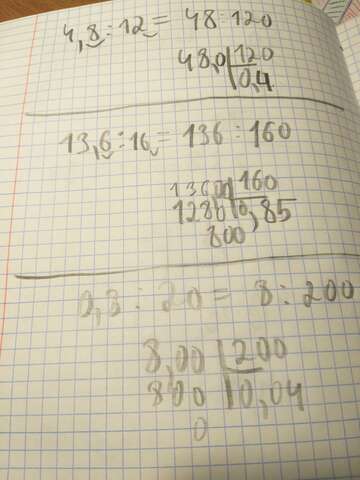 4,8 : 12 = 48 : 120
48,0 | 120
0,4
13,6 : 16 = 136 : 160
1360 | 160
1280 | 0,85
800
0,8 : 20 = 8 : 200
8,00 | 200
800 | 0,04
0